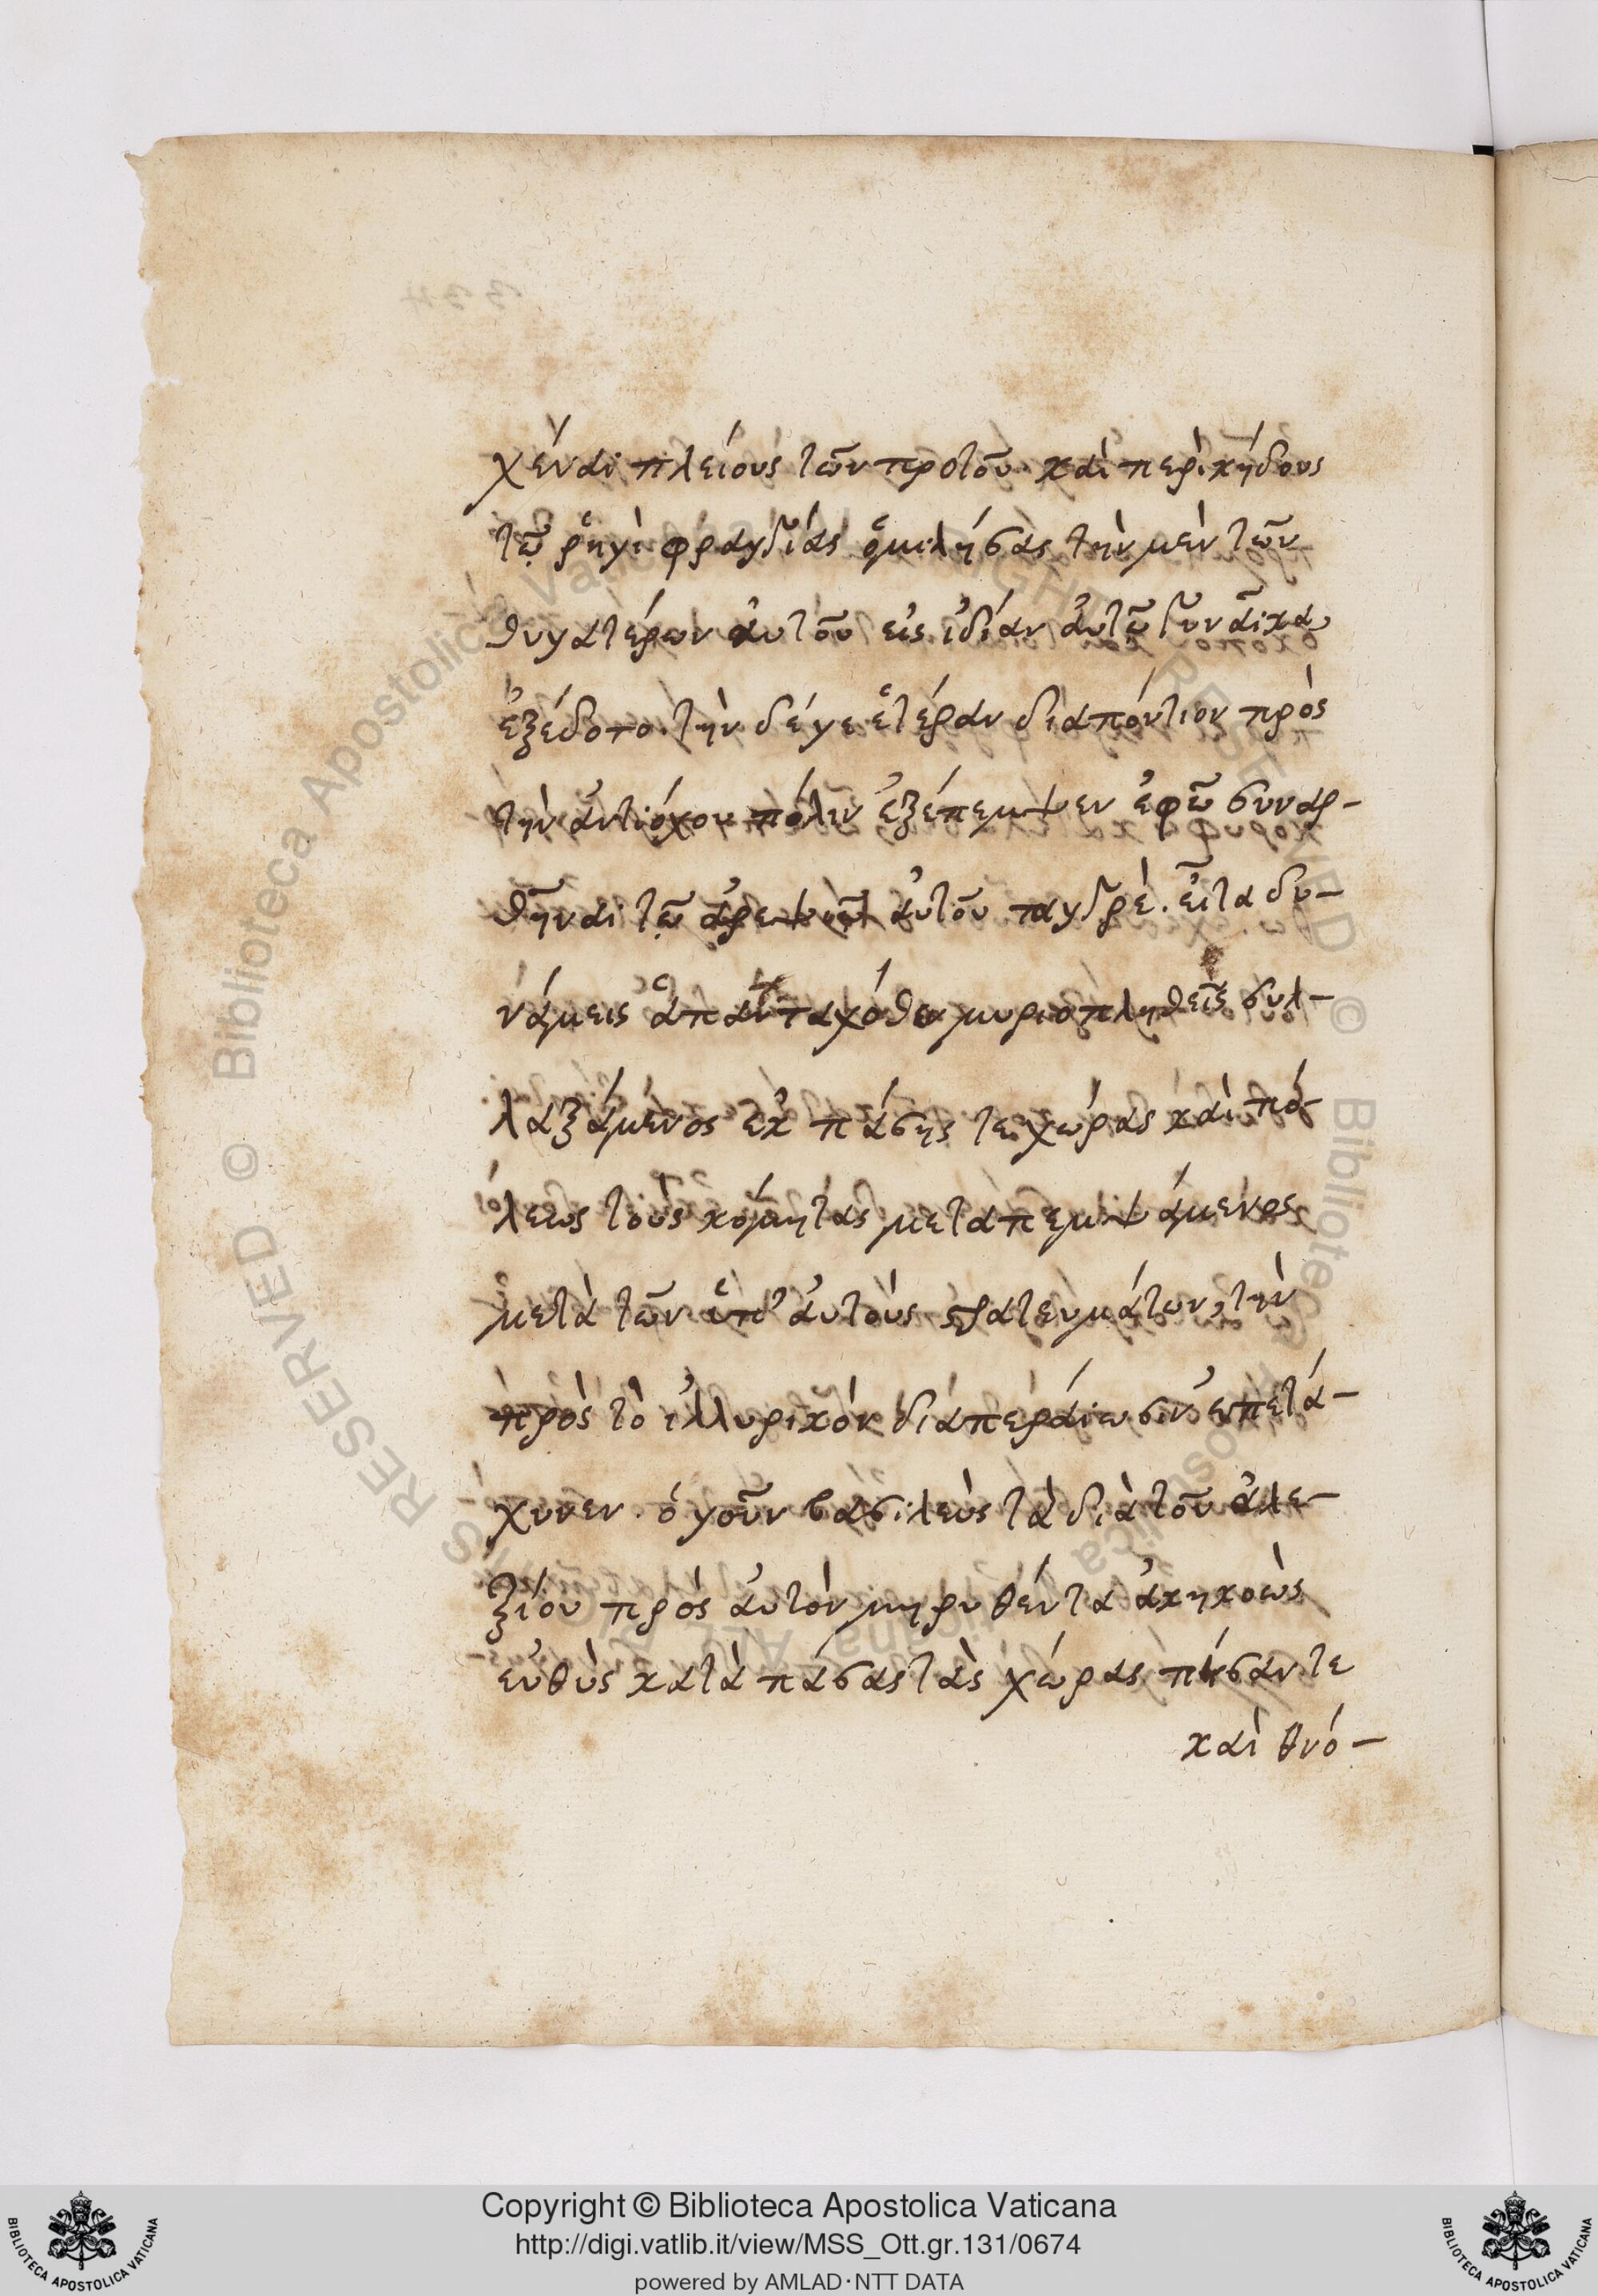 χέναι πλείους τῶν πρὸ τοῦ. καὶ περὶ κήδους
τῷ ῥηγὶ φραγγίας ὁμιλήσας τὴν μὲν τῶν
θυγατέρων αὐτοῦ εἰς ἰδίαν αὐτῷ γυναῖκα
ἐξέδοτο. τὴν δέγε ἑτέραν διαπόντιον πρὸς
τὴν ἀντιόχου πόλιν ἐξέπεμψεν ἐφῶ συναφ-
θῆναι τῷ αὐτοῦ παγγρέ. εἶτα δυ-
νάμεις ἁπανταχόθε μυριοπληθεῖς συλ-
λαξάμενος ἐκ πάσης τε χώρας καὶ πό-
λεως τοὺς κόμητας μεταπεμψάμενος
μετὰ τῶν ὑπ' αὐτοὺς στρατευμάτων, τὴν
πρὸς τὸ ἰλλυρικὸν διαπεραίωσιν ἐπετά-
χυνεν. ὁ γοῦν βασιλεὺς τὰ διὰ τοῦ ἀλε-
ξίου πρὸς αὐτὸν μηνυθέντα ἀκηκοὼς
εὐθὺς κατὰ πάσας τὰς χώρας τε
καὶ
Copyright © Biblioteca Apostolica Vaticana
http://digi.vatlib.it/view/MSS_Ott.gr.131/0674
powered by AMLAD·NTT DATA
BIBLIOTECA APOSTOLICA VATICANA
BIBLIOTECA APOSTOLICA VATICANA